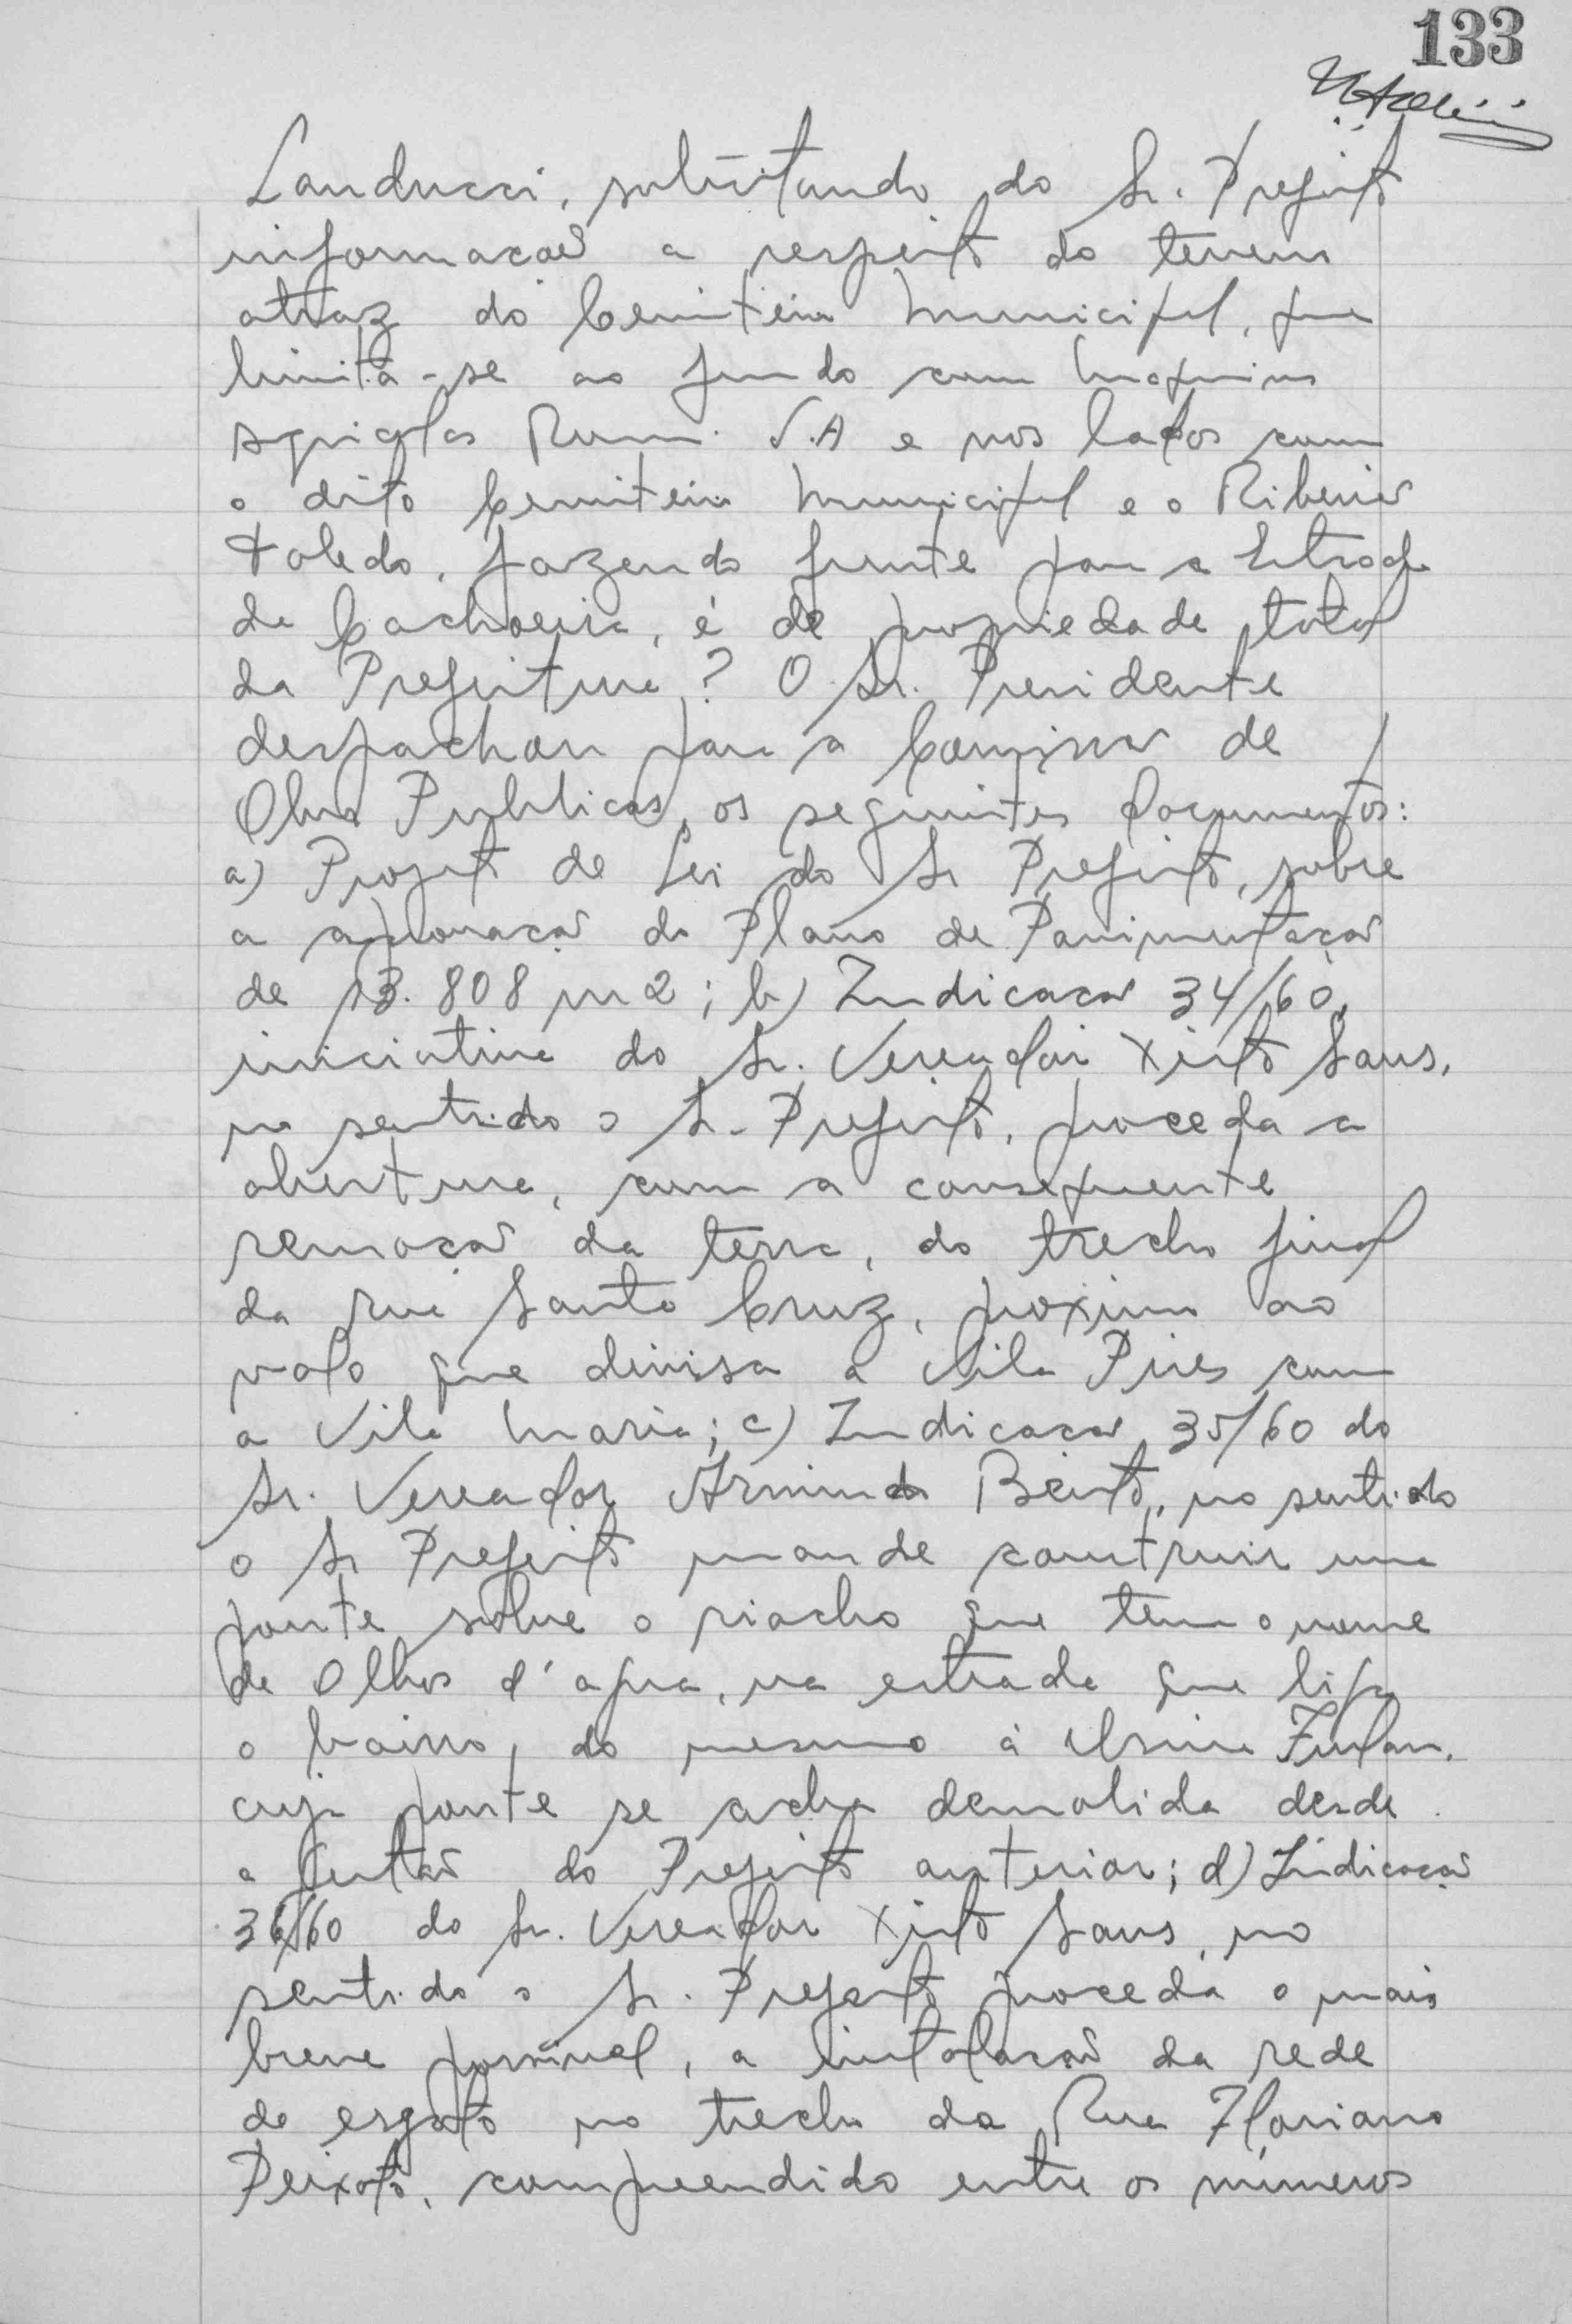 133
Landucci, solicitando do Sr. Prefeito
informação a respeito do terreno
atraz do Cemiterio Municipal, que
limita-se ao fundo com Maquinas
Agricolas Romi S.A e nos lados com
o dito Cemiterio Municipal e o Ribeirão
Toledo, fazendo frente para a Estrada
da Cachoeira, é de propriedade total
da Prefeitura? O Sr. Presidente
despachou para a Comissão de
Obras Publicas, os seguintes documentos:
a) Projeto de Lei do Sr Prefeito, sobre
a aprovação do Plano de Pavimentação
de 13.808 m2; b) Indicação 34/60,
iniciativa do Sr. Vereador Xisto Sans,
no sentido o Sr. Prefeito, proceda a
abertura, com a consequente
remoção da terra, do trecho final
da rua Santa Cruz, proximo ao
valo que divisa a Vila Pires com
a Vila Maria; c) Indicação 35/60 do
Sr. Vereador Arminda Bento, no sentido
o Sr Prefeito mande construir uma
ponte sobre o riacho que tem o nome
de Olhos d'agua, na estrada que liga
o bairro, do mesmo á Usina Furlan,
cuja ponte se acha demolida desde
a Gestão do Prefeito anterior; d) Indicação
36/60 do Sr. Vereador Xisto Sans, no
sentido o Sr. Prefeito proceda o mais
breve possivel, a instalação da rede
de esgoto no trecho da Rua Floriano
Peixoto, compreendido entre os números